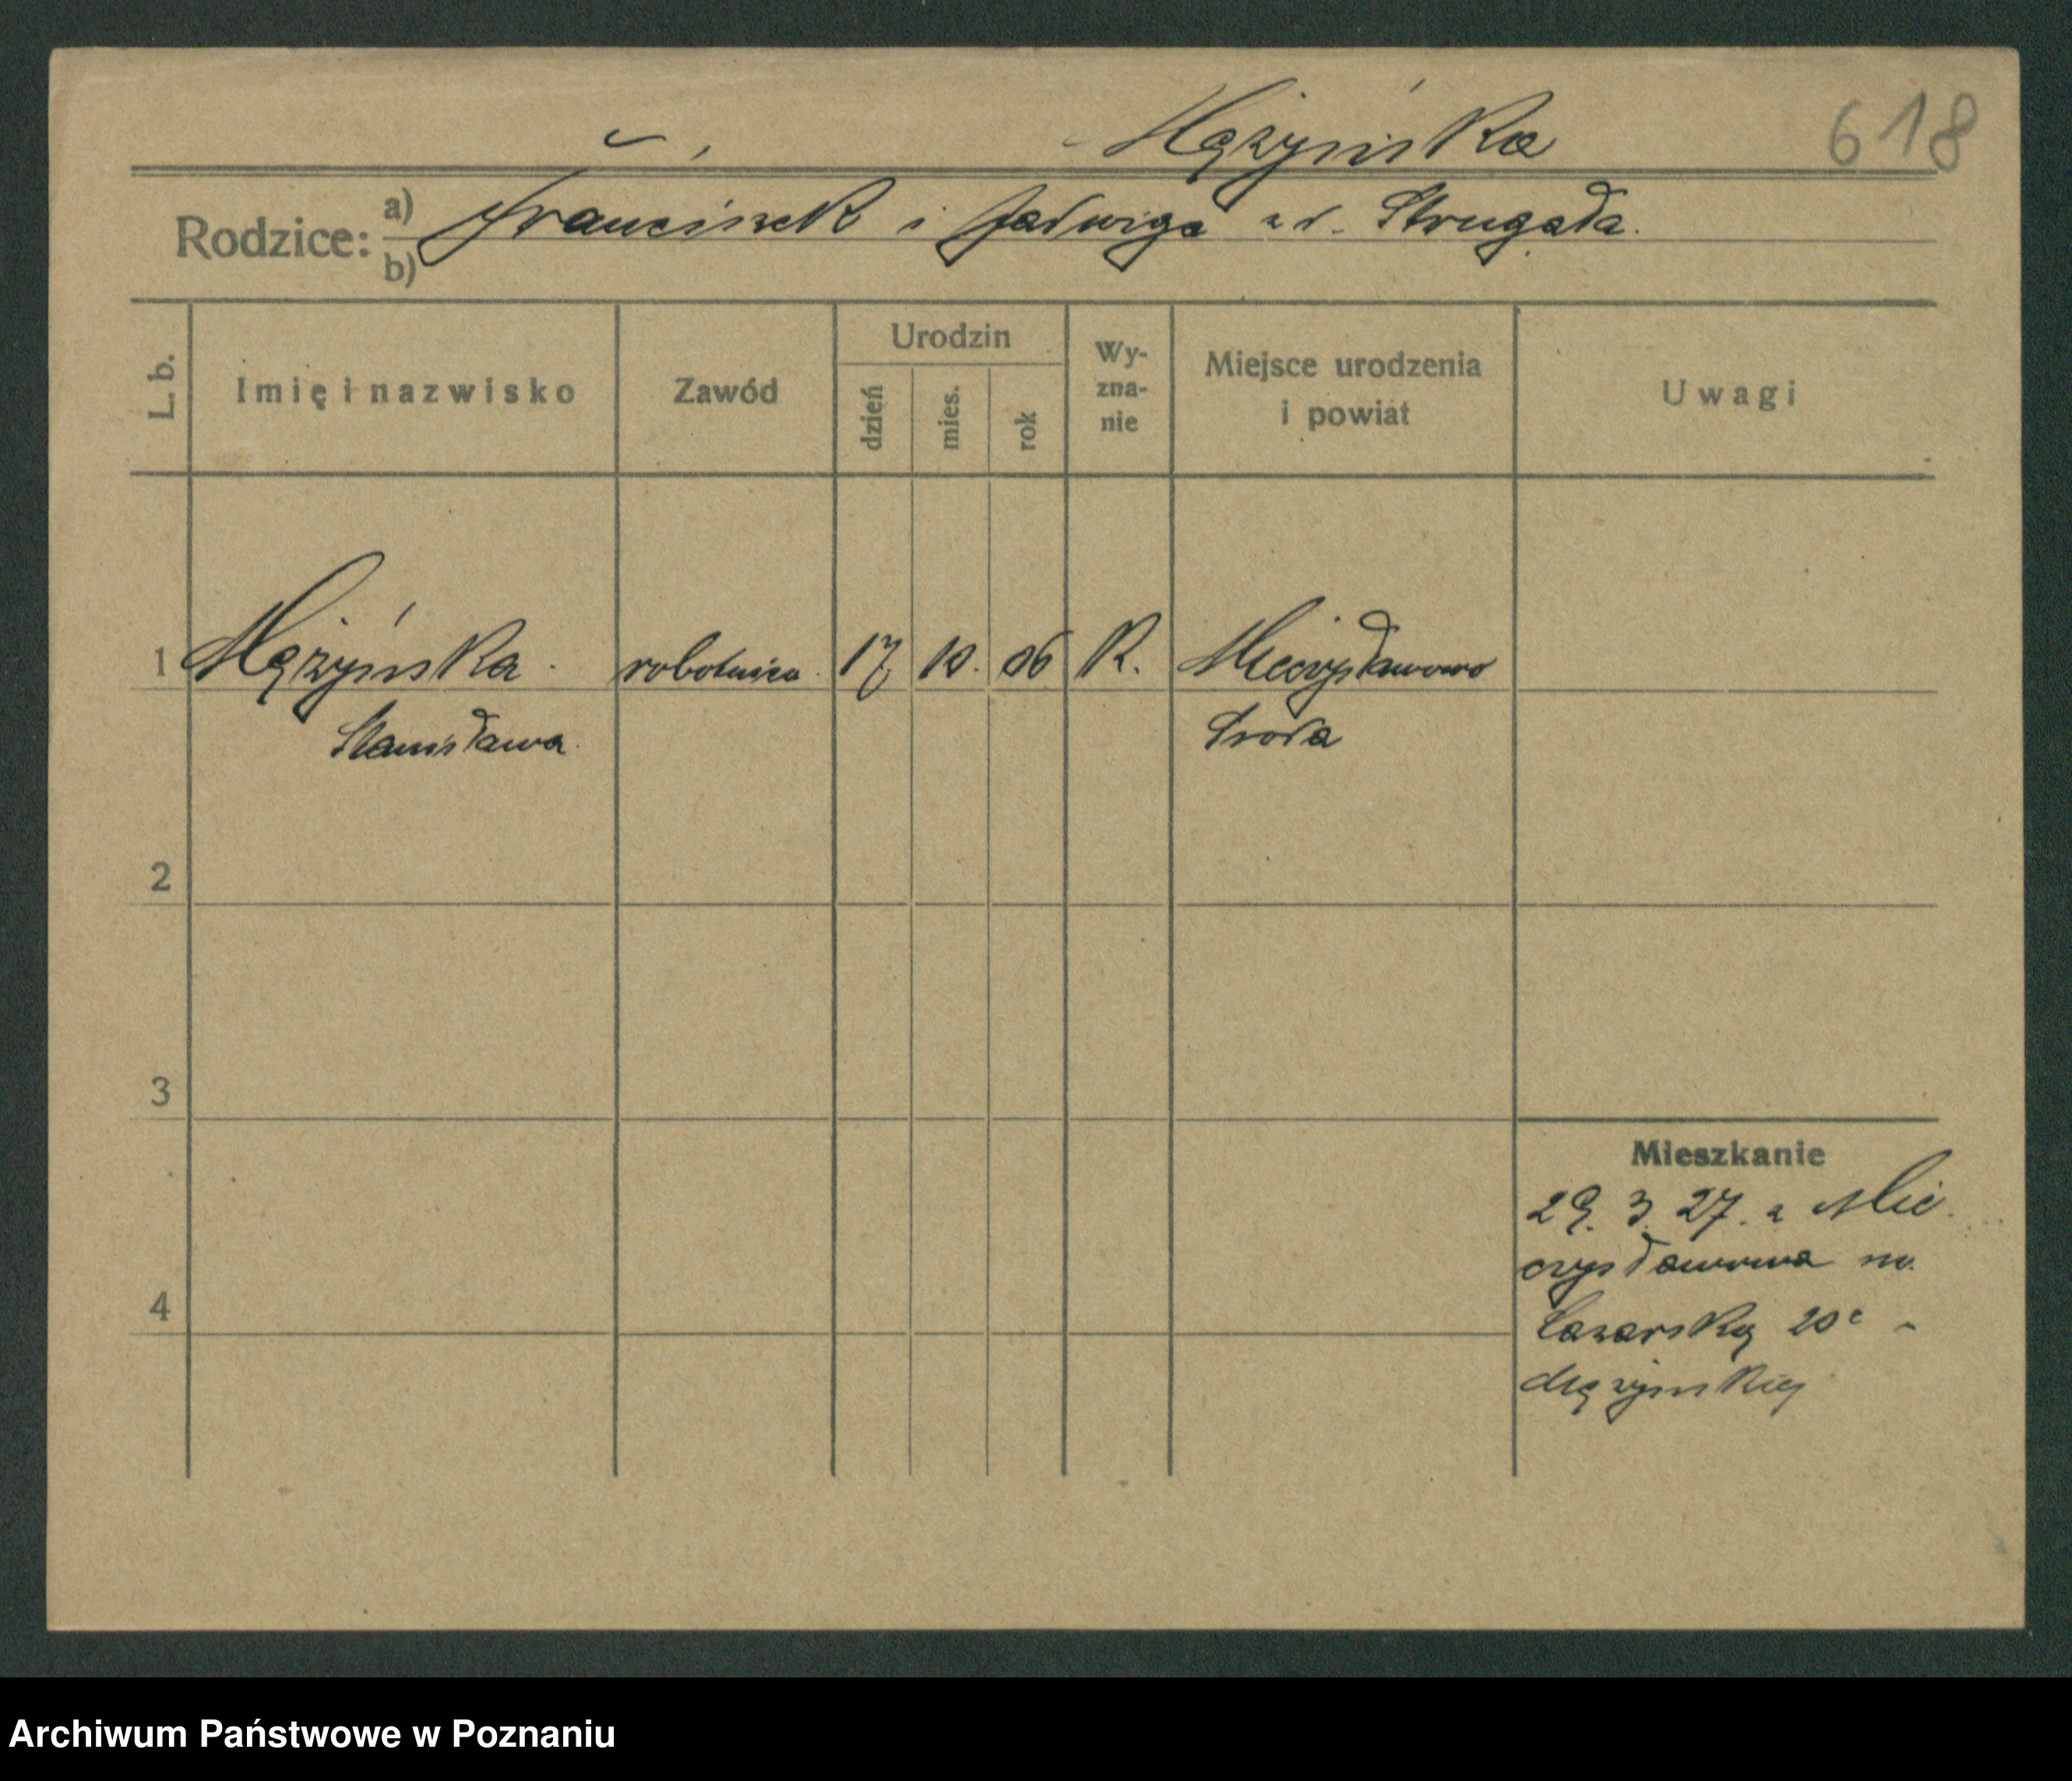 Mężyńska
618
Rodzice: a) Franciszek i Jadwiga z d. Strugała.
b)
L. b.
Imię i nazwisko
Zawód
Urodzin
dzień
mies.
rok
Wy-
zna-
nie
Miejsce urodzenia
i powiat
Uwagi
1 Mężyńska. robotnica. 17 10. 06 R. Mieczysławowo
Stanisława. Środa
2
3
4
Mieszkanie
29. 3. 27. z Mie
czysławowa na
Łazarską 20c
Mężyńskiej
Archiwum Państwowe w Poznaniu